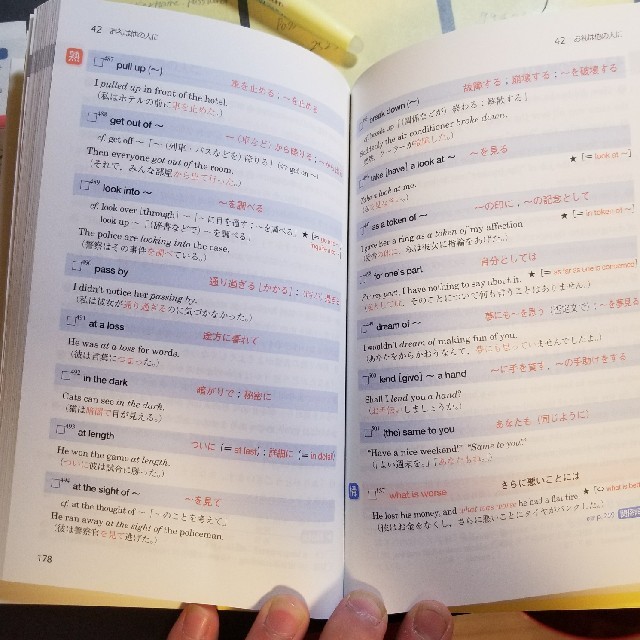 42 お礼は他の人に
熟
487 pull up (~)
車を止める；~を止める
I pulled up in front of the hotel.
（私はホテルの前に車を止めた。）
488 get out of ~
~（車など）から降りる；
cf. get off ~「~（列車・バスなどを）降りる」(⇔ get on ~)
Then everyone got out of the room.
（それで，みんな部屋から出て行った。）
489 look into ~
~を調べる
cf. look over [through] ~「~に目を通す；~を調べる」★
look up ~「（辞書など）で~を調べる」
The police are looking into the case.
（警察はその事件を調べている。）
490 pass by
通り過ぎる [かかる]；
I didn't notice her passing by.
（私は彼女が通り過ぎるのに気づかなかった。）
491 at a loss
途方に暮れて
He was at a loss for words.
（彼は言葉につまった。）
492 in the dark
暗がりで；秘密に
Cats can see in the dark.
（猫は暗闇で目が見える。）
493 at length
ついに (= at last)；詳細に (= in detail)
He won the game at length.
（ついに彼は試合に勝った。）
494 at the sight of ~
~を見て
cf. at the thought of ~「~のことを考えて」
He ran away at the sight of the policeman.
（彼は警察官を見て逃げた。）
178
42 お礼は他の人に
break down (~)
故障する；崩壊する；~を破壊する
cf. break up「（関係などが）終わる；解散する」
Suddenly the air conditioner broke down.
（突然，クーラーが故障した。）
take [have] a look at ~
~を見る
★ [= look at ~]
Take a look at me.
as a token of ~
~の印に，~の記念として
★ [= in token of ~]
I gave her a ring as a token of my affection
（愛情の印に，私は彼女に指輪をあげた。）
for one's part
自分としては
For my part, I have nothing to say about it.
（私としては，そのことについて何も言うことはありません。）
dream of ~
I wouldn't dream of making fun of you.
（あなたをからかおうなんて，夢にも思っていませんでしたよ。）
lend [give] ~ a hand
~に手を貸す，~の手助けをする
Shall I lend you a hand?
（お手伝いしましょうか。）
(the) same to you
あなたも（同じように）
"Have a nice weekend!" "Same to you!"
（「よい週末を。」「あなたもね。」）
what is worse
さらに悪いことには
He lost his money, and what was worse he had a flat tire
（彼はお金をなくし，さらに悪いことにタイヤがパンクした。）